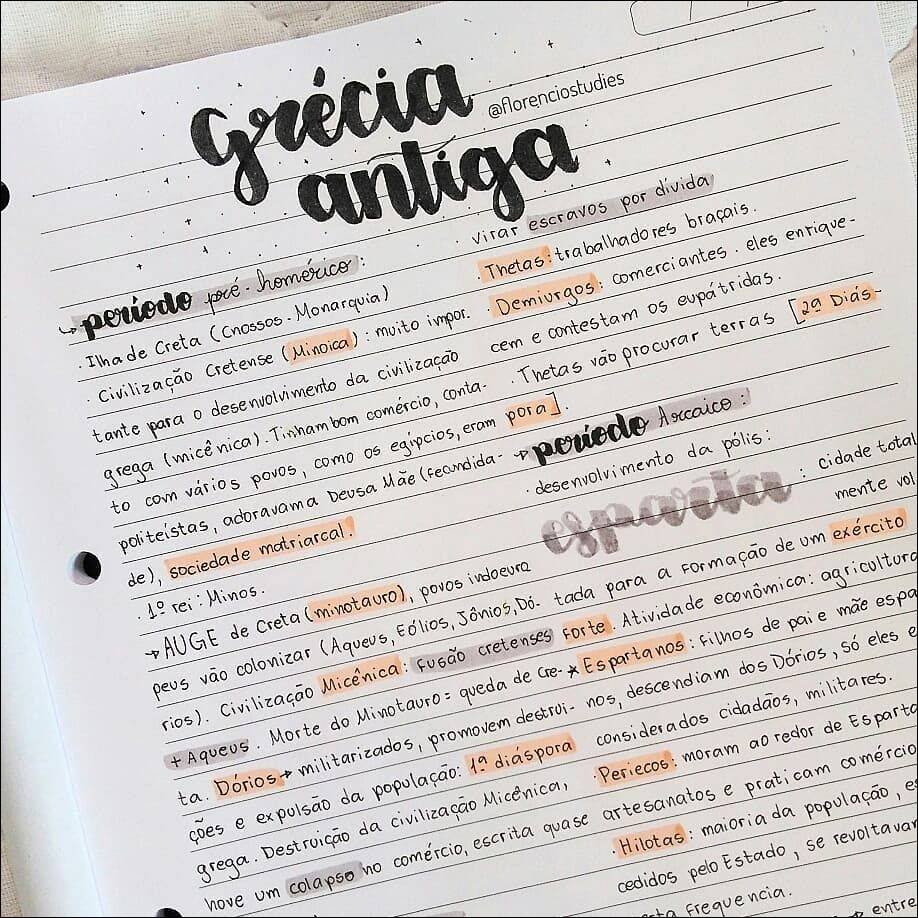 Grécia
@florenciostudies
antiga
↳ período pré-homérico:
. Ilha de Creta (Cnossos-Monarquia)
. Civilização Cretense (Minoica): muito impor.
tante para o desenvolvimento da civilização
grega (micênica). Tinham bom comércio, conta-
to com vários povos, como os egípcios, eram
politeístas, adoravam a Deusa Mãe (fecundida-
de), sociedade matriarcal.
. 1º rei: Minos.
→ AUGE de Creta (minotauro), povos indoeuro
peus vão colonizar (Aqueus, Eólios, Jônios, Dó-
rios). Civilização Micênica: fusão cretenses
+ Aqueus. Morte do Minotauro = queda de Cre-
ta. Dórios → militarizados, promovem destrui-
ções e expulsão da população: 1ª diáspora
grega. Destruição da civilização Micênica,
hove um colapso no comércio, escrita quase
virar escravos por dívida
Thetas: trabalhadores braçais.
. Demiurgos: comerciantes. eles enrique-
cem e contestam os eupátridas.
. Thetas vão procurar terras [2ª Diás
pora].
→ período Arcaico:
. desenvolvimento da pólis:
esparta: cidade total
mente vol
tada para a formação de um exército
forte. Atividade econômica: agricultura
★ Espartanos: filhos de pai e mãe espa
nos, descendiam dos Dórios, só eles e
considerados cidadãos, militares.
. Periecos: moram ao redor de Esparta
artesanatos e praticam comércio
. Hilotas: maioria da população, es
cedidos pelo Estado, se revoltavam
frequencia.
→ entre